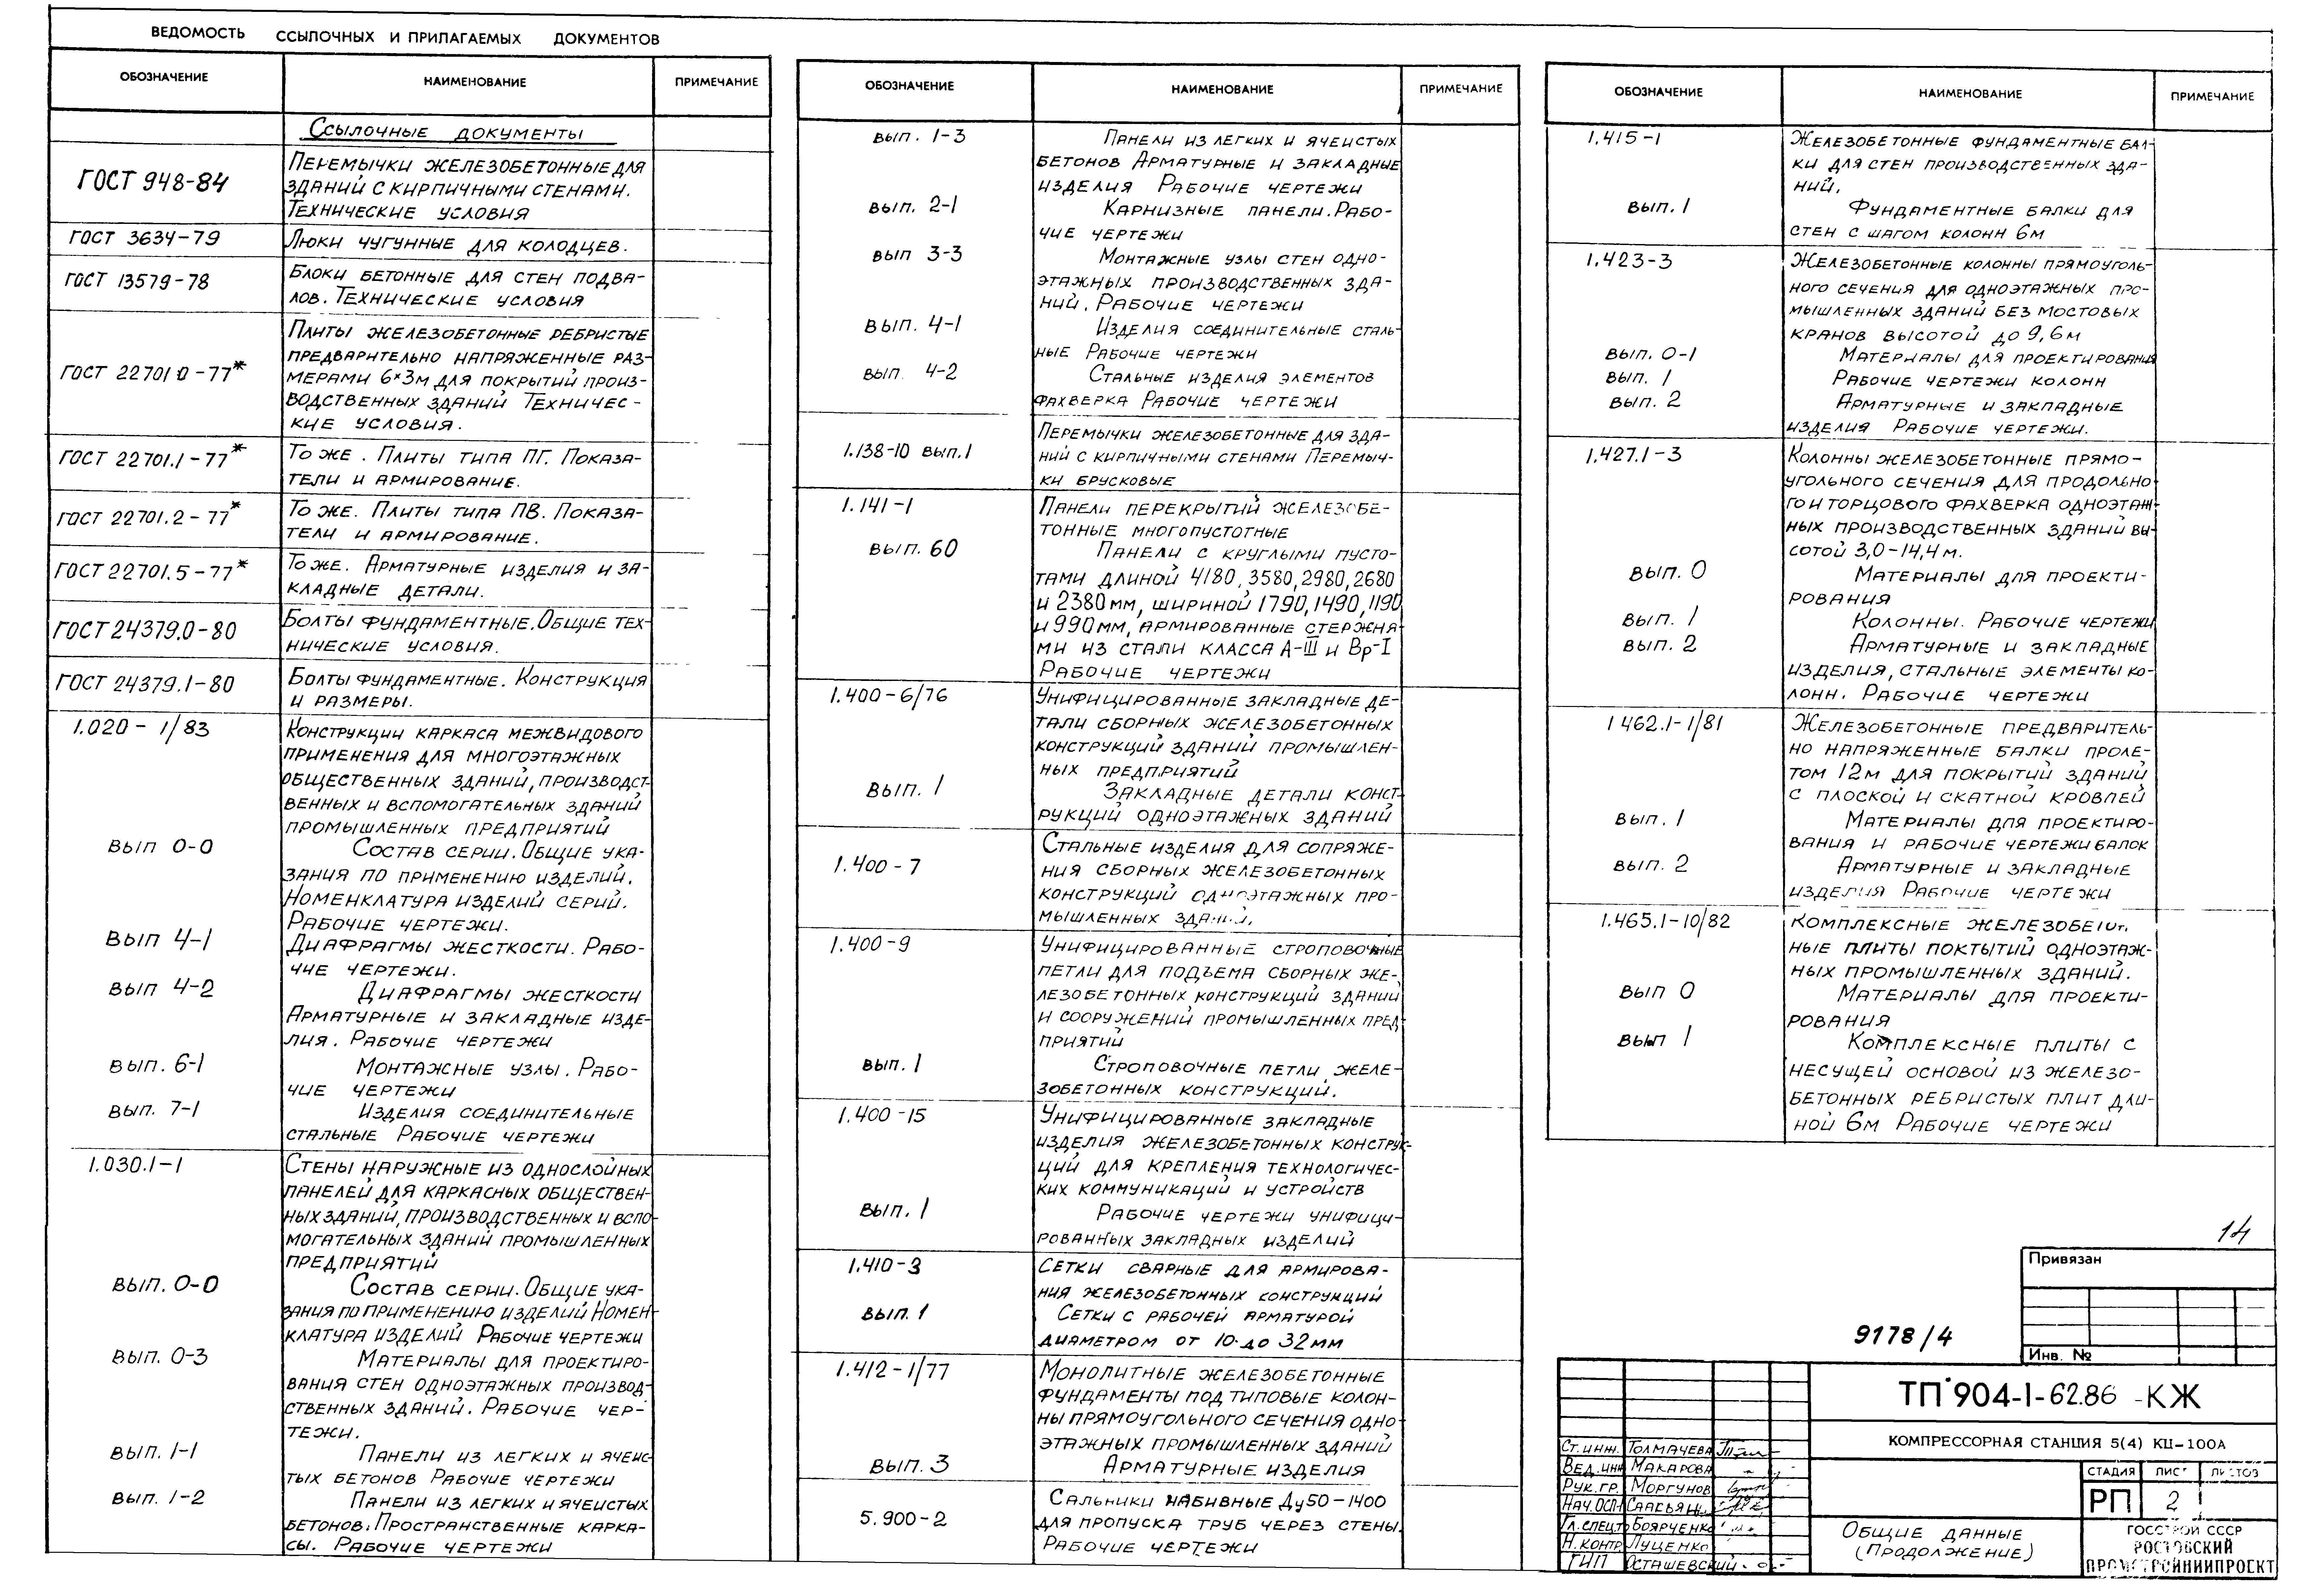 ВЕДОМОСТЬ ССЫЛОЧНЫХ И ПРИЛАГАЕМЫХ ДОКУМЕНТОВ
ОБОЗНАЧЕНИЕ НАИМЕНОВАНИЕ ПРИМЕЧАНИЕ
Ссылочные документы
ГОСТ 948-84 Перемычки железобетонные для
зданий с кирпичными стенами.
Технические условия
ГОСТ 3634-79 Люки чугунные для колодцев.
ГОСТ 13579-78 Блоки бетонные для стен подва-
лов. Технические условия
ГОСТ 22701.0-77* Плиты железобетонные ребристые
предварительно напряженные раз-
мерами 6×3м для покрытий произ-
водственных зданий Техничес-
кие условия.
ГОСТ 22701.1-77* То же. Плиты типа ПГ. Показа-
тели и армирование.
ГОСТ 22701.2-77* То же. Плиты типа ПВ. Показа-
тели и армирование.
ГОСТ 22701.5-77* То же. Арматурные изделия и за-
кладные детали.
ГОСТ 24379.0-80 Болты фундаментные. Общие тех-
нические условия.
ГОСТ 24379.1-80 Болты фундаментные. Конструкция
и размеры.
1.020-1/83 Конструкции каркаса межвидового
применения для многоэтажных
общественных зданий, производст-
венных и вспомогательных зданий
промышленных предприятий
вып 0-0 Состав серии. Общие ука-
зания по применению изделий.
Номенклатура изделий серий.
Рабочие чертежи.
вып 4-1 Диафрагмы жесткости. Рабо-
чие чертежи.
вып 4-2 Диафрагмы жесткости
Арматурные и закладные изде-
лия. Рабочие чертежи
вып. 6-1 Монтажные узлы. Рабо-
чие чертежи
вып. 7-1 Изделия соединительные
стальные Рабочие чертежи
1.030.1-1 Стены наружные из однослойных
панелей для каркасных обществен-
ных зданий, производственных и вспо-
могательных зданий промышленных
предприятий
вып. 0-0 Состав серии. Общие ука-
зания по применению изделий Номен-
клатура изделий Рабочие чертежи
вып. 0-3 Материалы для проектиро-
вания стен одноэтажных производ-
ственных зданий. Рабочие чер-
тежи.
вып. 1-1 Панели из легких и ячеис-
тых бетонов Рабочие чертежи
вып. 1-2 Панели из легких и ячеистых
бетонов. Пространственные карка-
сы. Рабочие чертежи
ОБОЗНАЧЕНИЕ НАИМЕНОВАНИЕ ПРИМЕЧАНИЕ
вып. 1-3 Панели из легких и ячеистых
бетонов Арматурные и закладные
изделия Рабочие чертежи
вып. 2-1 Карнизные панели. Рабо-
чие чертежи
вып 3-3 Монтажные узлы стен одно-
этажных производственных зда-
ний. Рабочие чертежи
вып. 4-1 Изделия соединительные сталь-
ные Рабочие чертежи
вып. 4-2 Стальные изделия элементов
фахверка Рабочие чертежи
1.138-10 вып.1 Перемычки железобетонные для зда-
ний с кирпичными стенами Перемыч-
ки брусковые
1.141-1 Панели перекрытий железобе-
тонные многопустотные
вып. 60 Панели с круглыми пусто-
тами длиной 4180, 3580, 2980, 2680
и 2380мм, шириной 1790, 1490, 1190
и 990мм, армированные стержня-
ми из стали класса А-III и Вр-I
Рабочие чертежи
1.400-6/76 Унифицированные закладные де-
тали сборных железобетонных
конструкций зданий промышлен-
ных предприятий
вып. 1 Закладные детали конст-
рукций одноэтажных зданий
1.400-7 Стальные изделия для сопряже-
ния сборных железобетонных
конструкций одноэтажных про-
мышленных зданий.
1.400-9 Унифицированные строповочные
петли для подъема сборных же-
лезобетонных конструкций зданий
и сооружений промышленных пред-
приятий
вып. 1 Строповочные петли желе-
зобетонных конструкций.
1.400-15 Унифицированные закладные
изделия железобетонных конструк-
ций для крепления технологичес-
ких коммуникаций и устройств
вып. 1 Рабочие чертежи унифици-
рованных закладных изделий
1.410-3 Сетки сварные для армирова-
ния железобетонных конструкций
вып. 1 Сетки с рабочей арматурой
диаметром от 10 до 32мм
1.412-1/77 Монолитные железобетонные
фундаменты под типовые колон-
ны прямоугольного сечения одно-
этажных промышленных зданий
вып. 3 Арматурные изделия
5.900-2 Сальники набивные Ду50-1400
для пропуска труб через стены.
Рабочие чертежи
ОБОЗНАЧЕНИЕ НАИМЕНОВАНИЕ ПРИМЕЧАНИЕ
1.415-1 Железобетонные фундаментные бал-
ки для стен производственных зда-
ний.
вып. 1 Фундаментные балки для
стен с шагом колонн 6м
1.423-3 Железобетонные колонны прямоуголь-
ного сечения для одноэтажных про-
мышленных зданий без мостовых
кранов высотой до 9,6м
вып. 0-1 Материалы для проектирования
вып. 1 Рабочие чертежи колонн
вып. 2 Арматурные и закладные
изделия Рабочие чертежи.
1.427.1-3 Колонны железобетонные прямо-
угольного сечения для продольно-
го и торцового фахверка одноэтаж-
ных производственных зданий вы-
сотой 3,0-14,4м.
вып. 0 Материалы для проекти-
рования
вып. 1 Колонны. Рабочие чертежи
вып. 2 Арматурные и закладные
изделия, стальные элементы ко-
лонн. Рабочие чертежи
1.462.1-1/81 Железобетонные предваритель-
но напряженные балки проле-
том 12м для покрытий зданий
с плоской и скатной кровлей
вып. 1 Материалы для проектиро-
вания и рабочие чертежи балок
вып. 2 Арматурные и закладные
изделия Рабочие чертежи
1.465.1-10/82 Комплексные железобетон-
ные плиты поктытий одноэтаж-
ных промышленных зданий.
вып 0 Материалы для проекти-
рования
вып 1 Комплексные плиты с
несущей основой из железо-
бетонных ребристых плит дли-
ной 6м Рабочие чертежи
14
Привязан
Инв. №
9178/4
ТП 904-1-62.86 -КЖ
КОМПРЕССОРНАЯ СТАНЦИЯ 5(4) КЦ-100А
Ст. инж. Толмачева
Вед. инж Макарова
Рук. гр. Моргунов
Нач. ОСП Саасьян
Гл. спец. Боярченко
Н. контр Луценко
ГИП Осташевский
СТАДИЯ ЛИСТ ЛИСТОВ
РП 2
Общие данные
(продолжение)
ГОССТРОЙ СССР
РОСТОВСКИЙ
ПРОМСТРОЙНИИПРОЕКТ